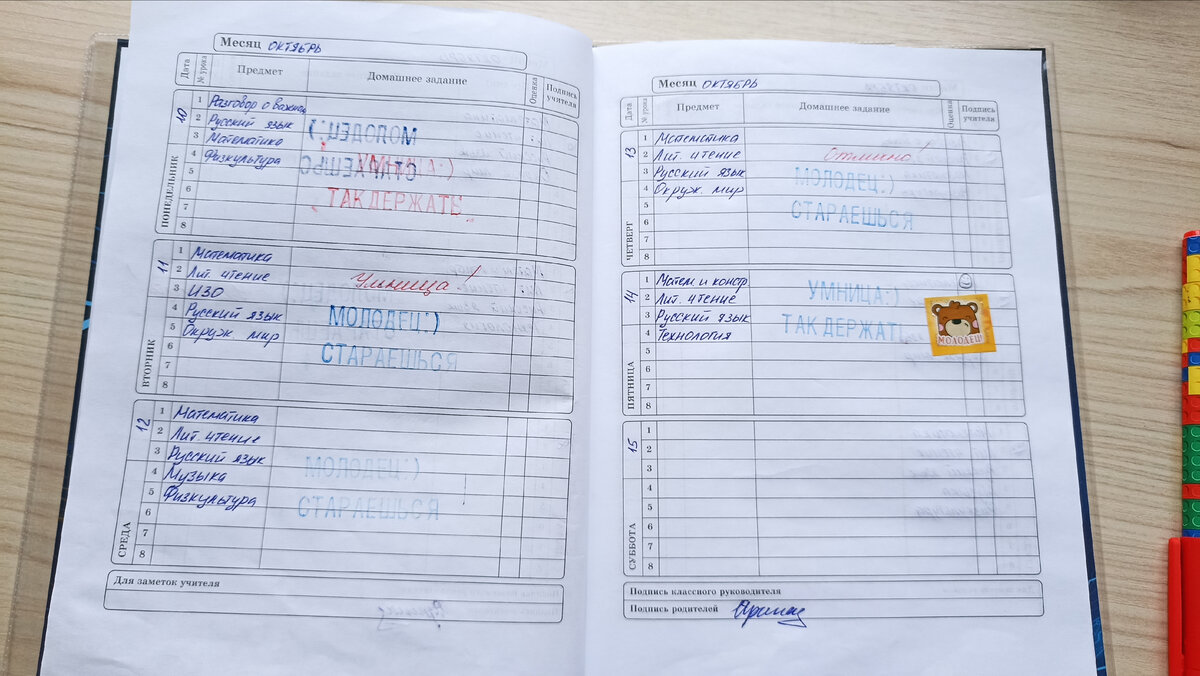 Месяц ОКТЯБРЬ
Дата № урока Предмет Домашнее задание Оценка Подпись учителя
ПОНЕДЕЛЬНИК 10
1 Разговор о важном
2 Русский язык МОЛОДЕЦ:)
3 Математика
4 Физкультура УМНИЦА:)
5
6 ТАК ДЕРЖАТЬ
7
8
ВТОРНИК 11
1 Математика
2 Лит. чтение Умница!
3 ИЗО
4 Русский язык МОЛОДЕЦ:)
5 Окруж. мир
6 СТАРАЕШЬСЯ
7
8
СРЕДА 12
1 Математика
2 Лит. чтение
3 Русский язык МОЛОДЕЦ:)
4 Музыка
5 Физкультура СТАРАЕШЬСЯ
6
7
8
Для заметок учителя
Месяц ОКТЯБРЬ
Дата № урока Предмет Домашнее задание Оценка Подпись учителя
ЧЕТВЕРГ 13
1 Математика
2 Лит. чтение Отлично!
3 Русский язык МОЛОДЕЦ:)
4 Окруж. мир
5 СТАРАЕШЬСЯ
6
7
8
ПЯТНИЦА 14
1 Матем и констр УМНИЦА:)
2 Лит. чтение
3 Русский язык ТАК ДЕРЖАТЬ
4 Технология МОЛОДЕЦ!
5
6
7
8
СУББОТА 15
1
2
3
4
5
6
7
8
Подпись классного руководителя
Подпись родителей